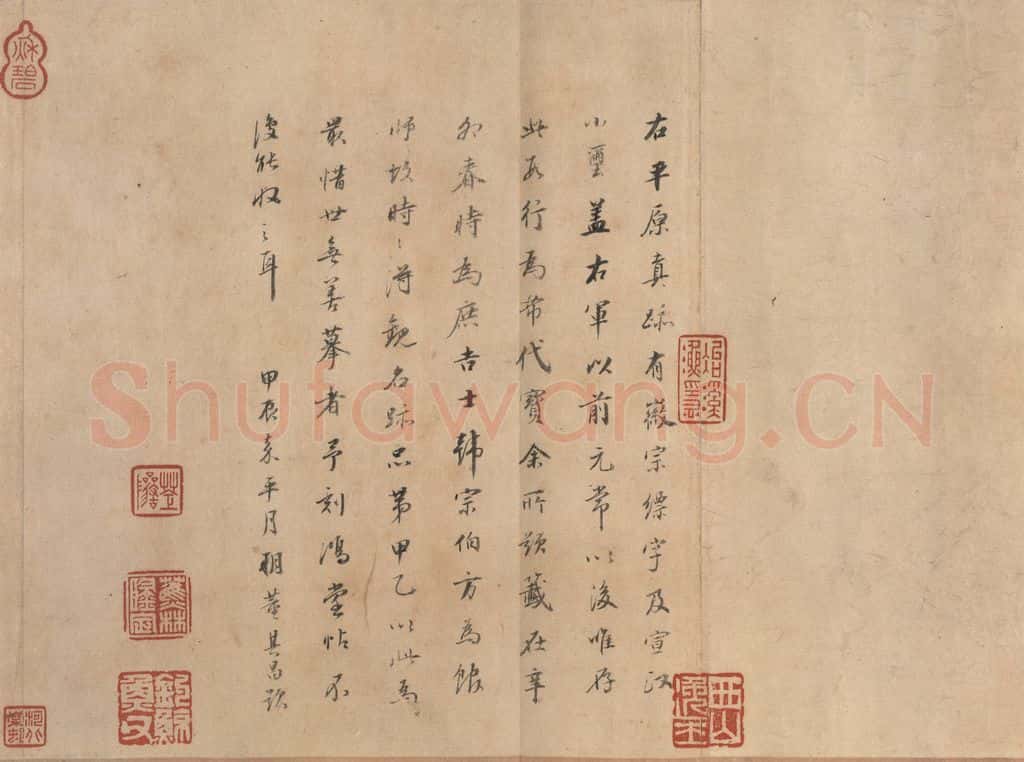 右平原真跡有徽宗縹字及宣政
小璽盖右軍以前元常以後唯存
此數行為希代寶余所題籤在辛
卯春時為庶吉士韓宗伯方為館
師故時〻得觀名跡品第甲乙以此為
最惜世無善摹者予刻鴻堂帖不
復能收之耳 甲辰嘉平月朔 董其昌題
冶溪漁隱
Shufawang.CN